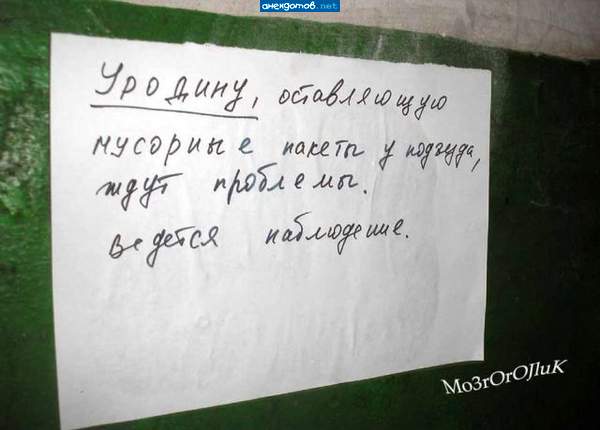 анекдотов.net
Уродину, оставляющую
мусорные пакеты у подъезда,
ждут проблемы.
ведется наблюдение.
Mo3rOrOJluK